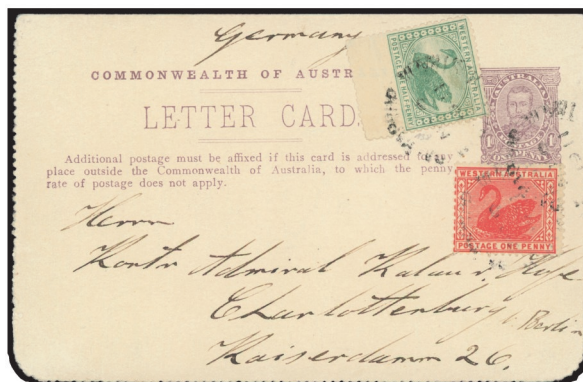 Germany
COMMONWEALTH OF AUSTR
LETTER CARD
Additional postage must be affixed if this card is addressed to any
place outside the Commonwealth of Australia, to which the penny
rate of postage does not apply.
WESTERN AUSTRALIA
POSTAGE ONE HALFPENNY
AUSTRALIA
1 1
ONE PENNY
WESTERN AUSTRALIA
POSTAGE ONE PENNY
Herrn
Kontr Admiral Kalau v.
Charlottenburg Berlin
Kaiserdamm 26.